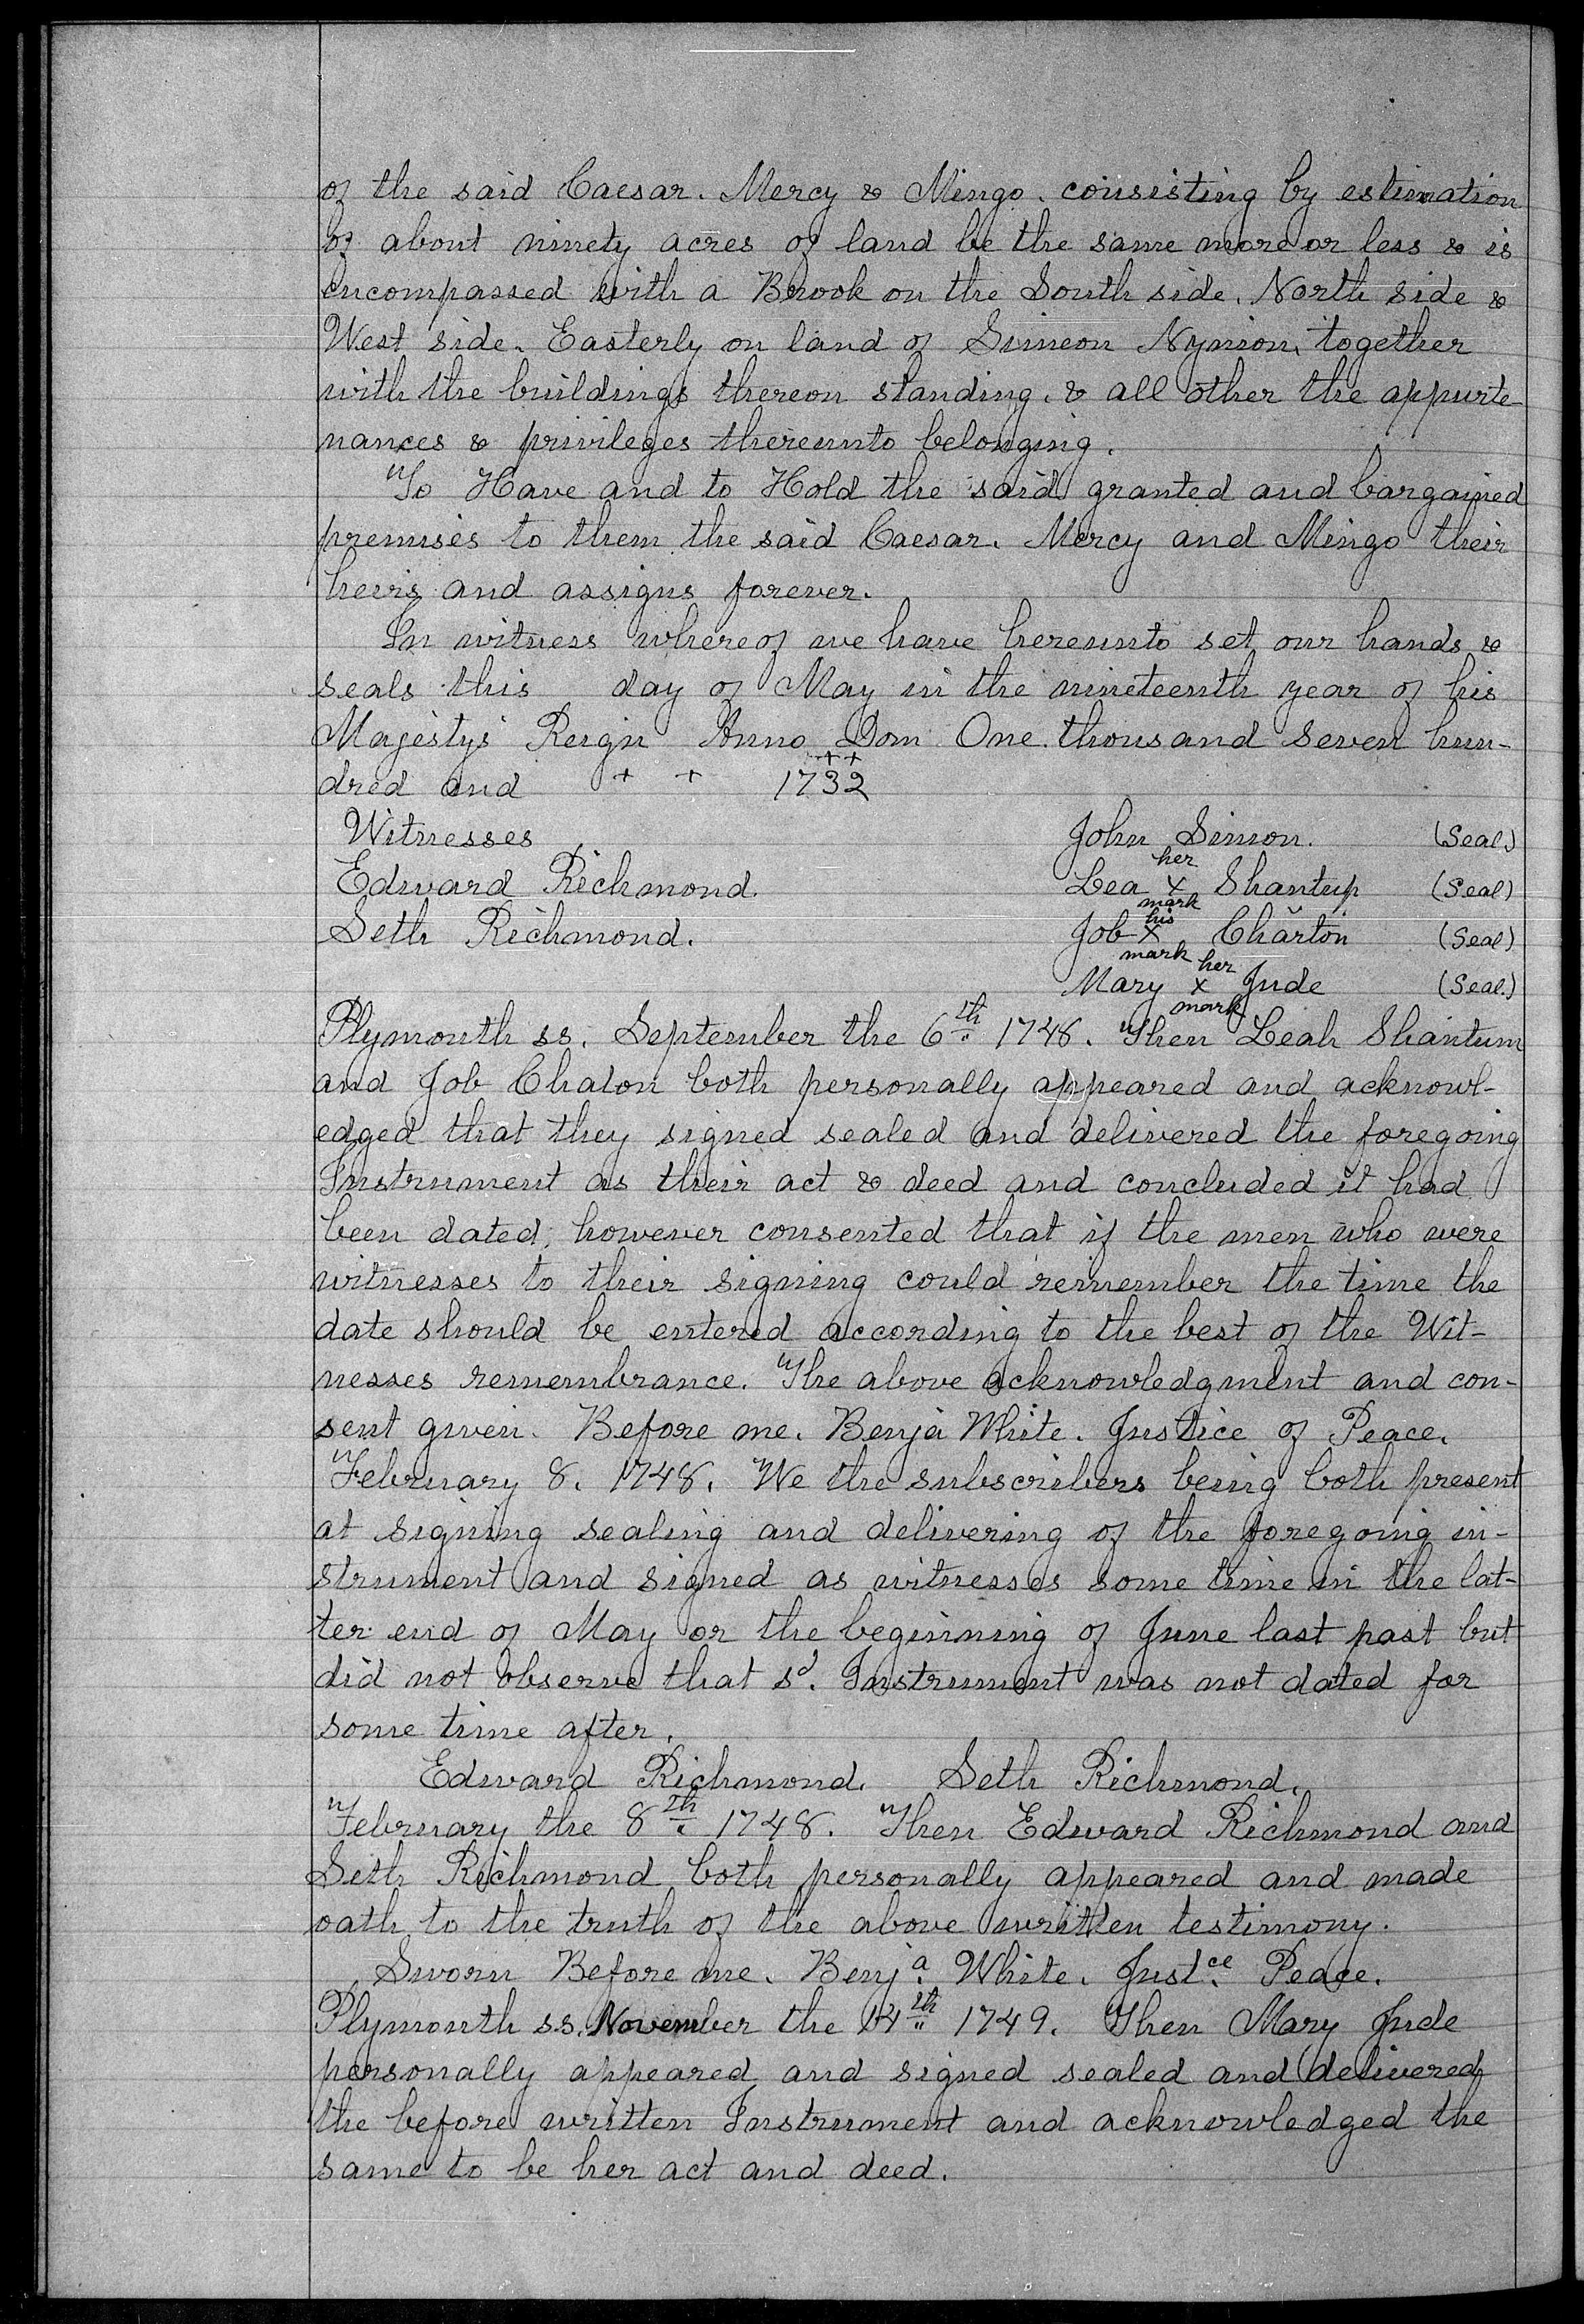 of the said Caesar. Mercy & Mingo. consisting by estimation
of about ninety acres of land be the same more or less & is
encompassed with a Brook on the South side. North side &
West side. Easterly on land of Simeon Nynion, together
with the buildings thereon standing. & all other the appurte
nances & privileges thereunto belonging.
To Have and to Hold the said granted and bargained
premises to them the said Caesar. Mercy and Mingo their
heirs and assigns forever.
In witness whereof we have hereunto set our hands &
seals this day of May in the nineteenth year of his
Majestys Reign Anno Dom One thousand seven hun-
++
dred and + + 1732
Witnesses John Simon. (Seal)
her
Edward Richmond. Lea x Shantup (Seal)
mark
his
Seth Richmond. Job x Charton (Seal)
mark her
Mary x Jude (Seal.)
mark
Plymouth ss. September the 6th 1748. Then Leah Shantum
and Job Chalon both personally appeared and acknowl-
edged that they signed sealed and delivered the foregoing
Instrument as their act & deed and concluded it had
been dated, however consented that if the men who were
witnesses to their signing could remember the time the
date should be entered according to the best of the Wit-
nesses remembrance. The above acknowledgment and con-
sent given. Before me. Benja White. Justice of Peace.
February 8. 1748. We the subscribers being both present
at signing sealing and delivering of the foregoing in-
strument and signed as witnesses some time in the lat-
ter end of May or the beginning of June last past but
did not observe that sd. Instrument was not dated for
some time after.
Edward Richmond. Seth Richmond.
February the 8th 1748. Then Edward Richmond and
Seth Richmond both personally appeared and made
oath to the truth of the above written testimony.
Sworn Before me. Benja. White. Justce. Peace.
Plymouth ss. November the 14th 1749. Then Mary Jude
personally appeared and signed sealed and delivered
the before written Instrument and acknowledged the
same to be her act and deed.